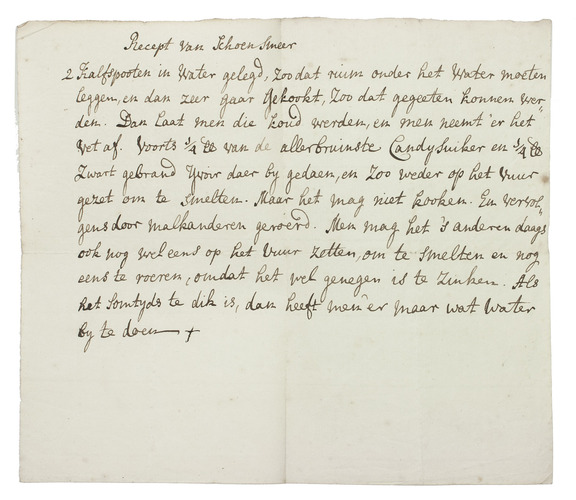 Recept van Schoen Smeer
2 Kalfspooten in Water gelegd, Zoo dat ruim onder het Water moeten
leggen, en dan zeer gaar gekookt, Zoo dat gegeeten konnen wer-
den. Dan Laat men die koud werden, en men neemt 'er het
Vet af. Voorts 1/4 lb van de allerbruinste CandySuiker en 1/4 lb
Zwart gebrand Yvoir daer by gedaen, en Zoo weder op het Vuur
gezet om te Smelten. Maar het mag niet kooken. En vervol-
gens door malkanderen geroerd. Men mag het 's anderen daags
ook nog wel eens op het Vuur Zetten, om te Smelten en nog
eens te roeren, omdat het wel genegen is te Zinken. Als
het Somtyds te dik is, dan heeft men 'er maar wat Water
by te doen